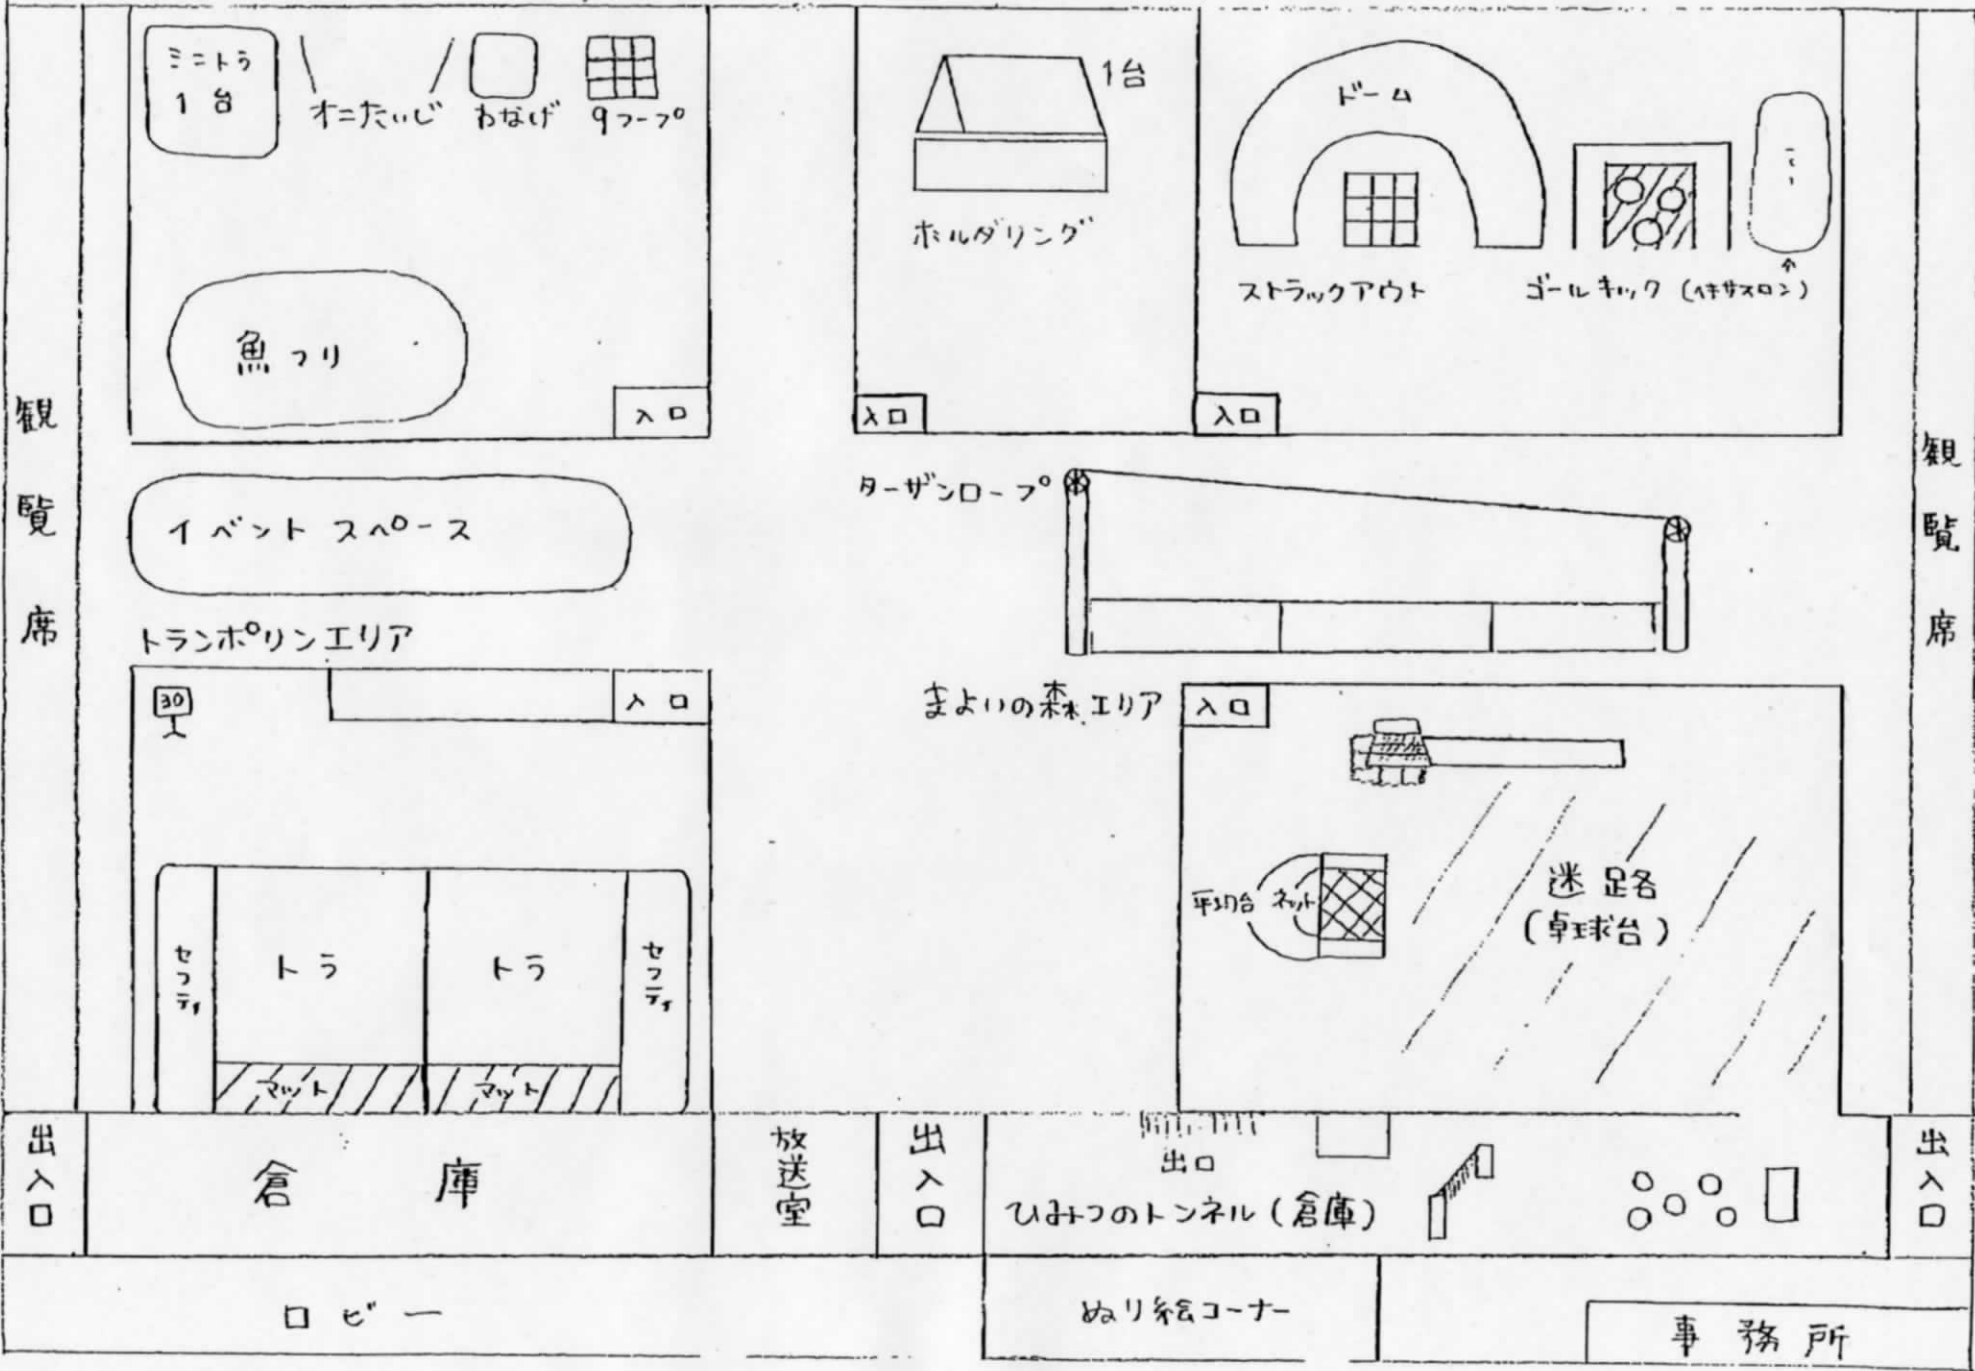 ミニトラ
1台
オニたいじ
わなげ
9フープ
魚つり
入口
1台
ボルダリング
入口
ドーム
ストラックアウト
ゴールキック(ヘキサスロン)
入口
観覧席
観覧席
イベントスペース
ターザンロープ
トランポリンエリア
30
入口
セフティ
トラ
トラ
セフティ
マット
マット
まよいの森エリア
入口
平均台
ネット
迷路
(卓球台)
出入口
倉庫
放送室
出入口
出口
ひみつのトンネル(倉庫)
出入口
ロビー
ぬり絵コーナー
事務所